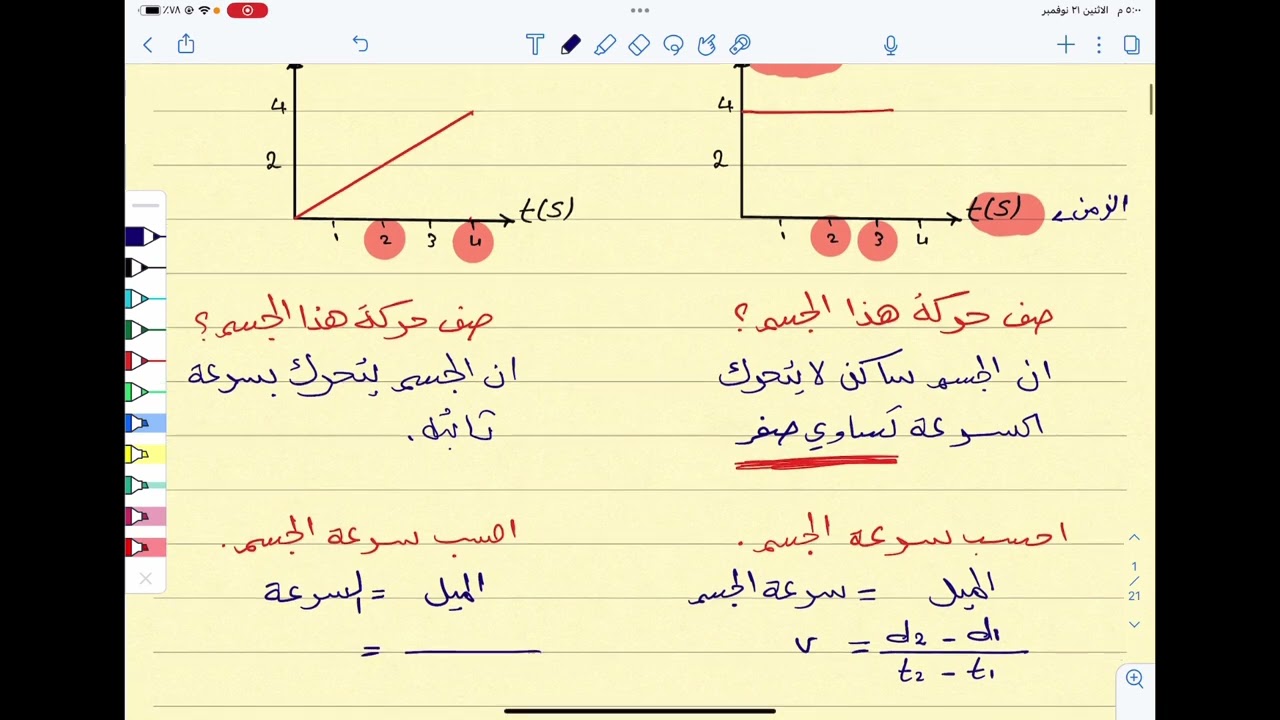 ٥:٠٠ م الاثنين ٢١ نوفمبر
٧٨٪
4
2
t(s)
1 2 3 4
الزمن
4
2
t(s)
1 2 3 4
صف حركة هذا الجسم؟
ان الجسم ساكن لا يتحرك
السرعة تساوي صفر
احسب سرعة الجسم.
الميل = سرعة الجسم
v = d2 - d1
t2 - t1
صف حركة هذا الجسم؟
ان الجسم يتحرك بسرعة
ثابته.
احسب سرعة الجسم.
الميل = السرعة
=
1
/
21
T